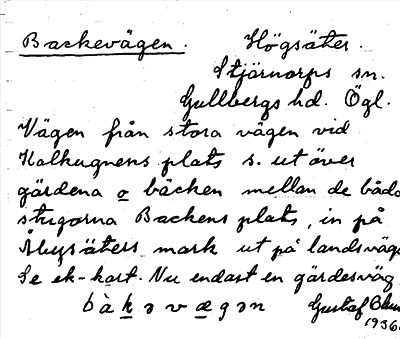 Backevägen. Högsäter.
Stjärnorps sn.
Gullbergs hd. Ögl.
Vägen från stora vägen vid
Kalkugnens plats s. ut över
gärdena o bäcken mellan de båda
stugorna Backens plats, in på
Åbysäters mark ut på landsväg
Se ek-kart. Nu endast en gärdesväg
bàkəvægən Gustaf
1936